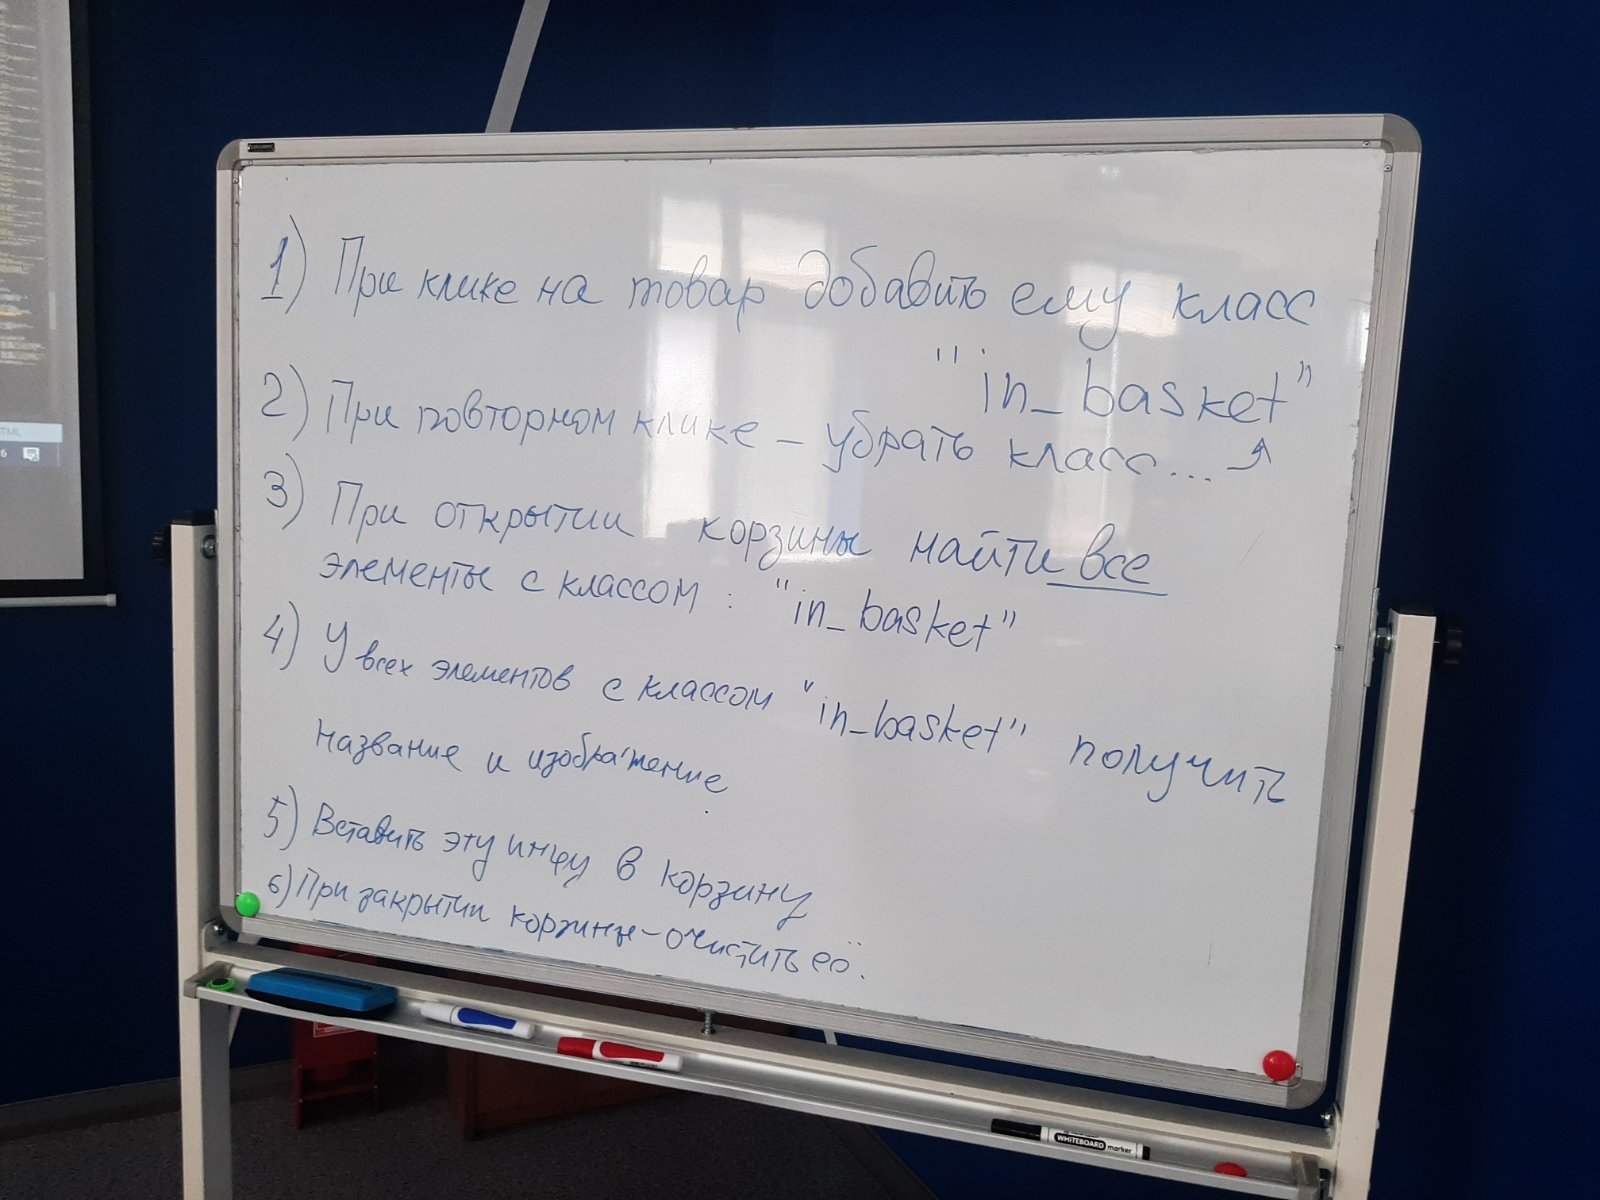 1) При клике на товар добавить ему класс
"in_basket"
2) При повторном клике – убрать класс...
3) При открытии корзины найти все
элементы с классом : "in_basket"
4) У всех элементов с классом "in_basket" получить
название и изображение
5) Вставить эту инфу в корзину
6) При закрытии корзины – очистить её.
WHITEBOARD marker
TML
6